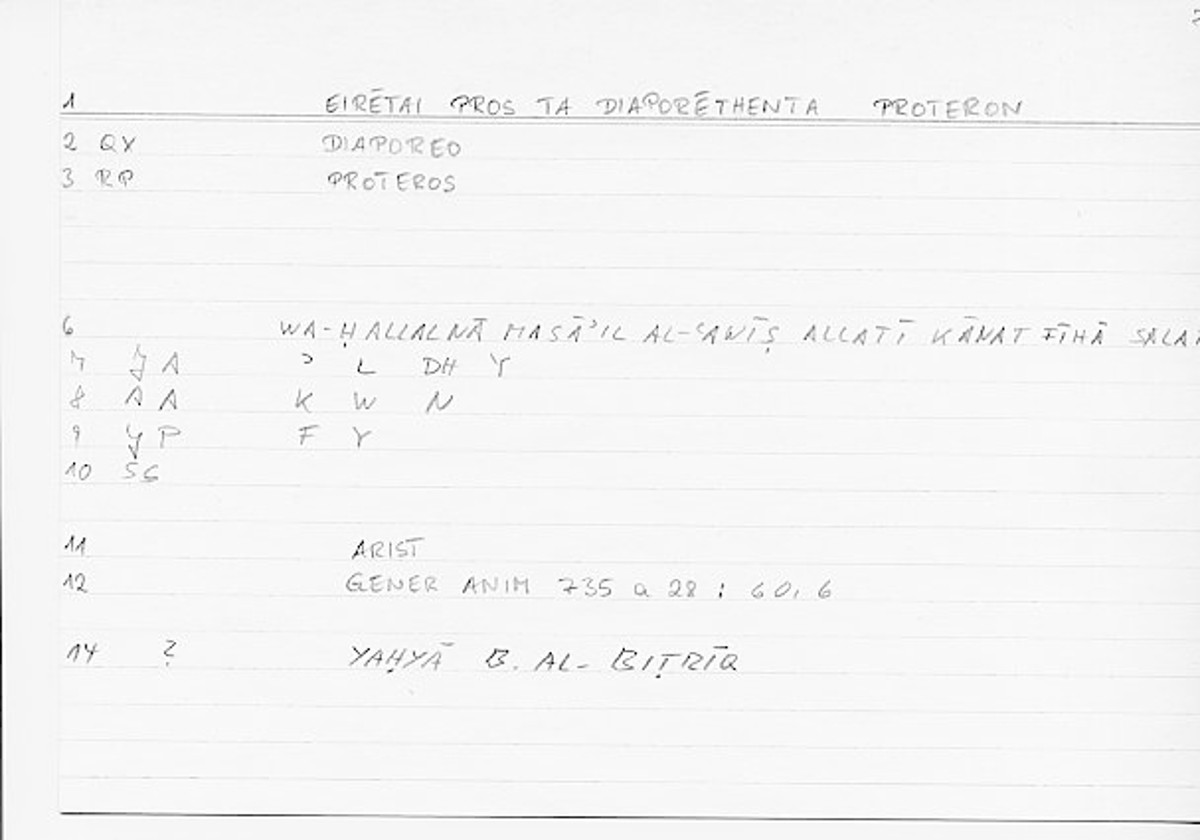 1 EIRĒTAI PROS TA DIAPORĒTHENTA PROTERON
2 QX DIAPOREO
3 RP PROTEROS
6 WA-ḤALLALNĀ MASĀʾIL AL-ʿAWĪṢ ALLATĪ KĀNAT FĪHĀ
7 JA ʾ L DH Y
8 AA K W N
9 YP F Y
10 SG
11 ARIST
12 GENER ANIM 735 a 28 : 60, 6
14 ? YAḤYĀ B. AL-BIṬRĪQ